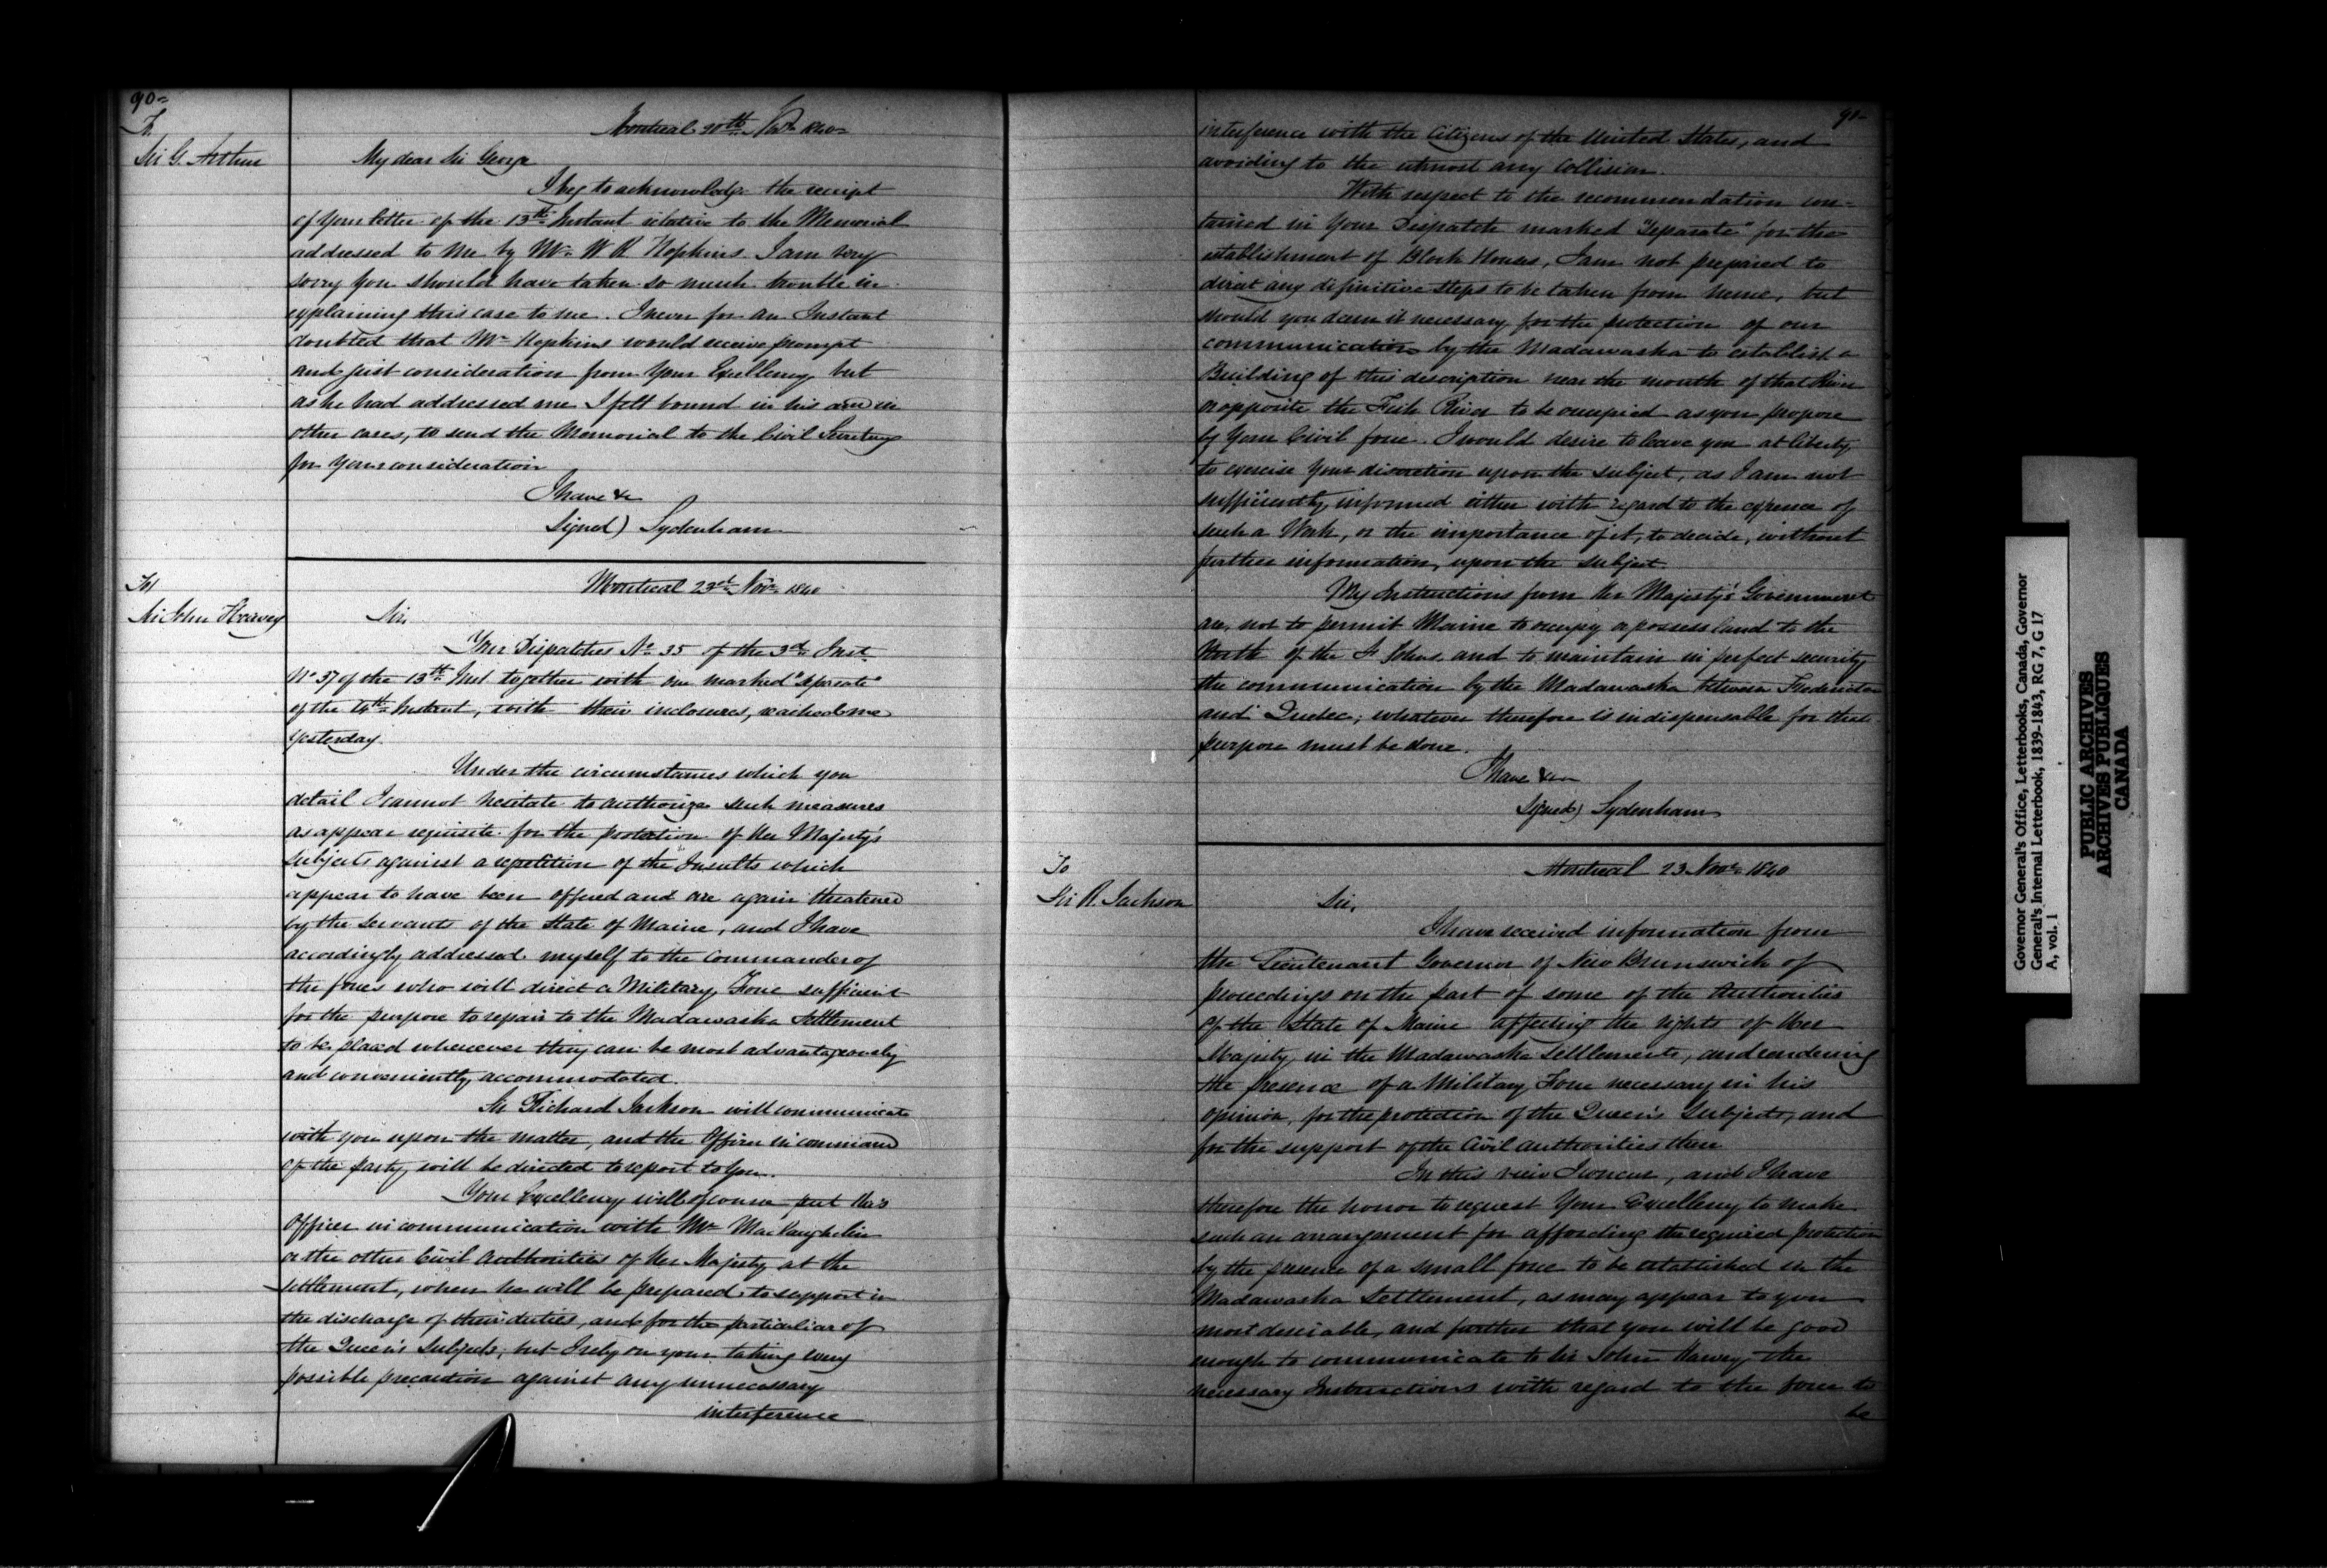 90=
To
Sir G. Arthur
Montreal 20th Novr 1840=
My dear Sir George
I beg to acknowledge the receipt
of your letter of the 13th Instant relative to the Memorial
addressed to me by Mr W R Hopkins. I am very
sorry you should have taken so much trouble in
explaining this case to me. I never for an Instant
doubted that Mr Hopkins would receive prompt
and just consideration from Your Excellency but
as he had addressed me I felt bound in his as in
other cases, to send the Memorial to the Civil Secretary
for Your consideration
I have &c
Signed) Sydenham
To
Sir John Harvey
Montreal 23d Novr 1840
Sir,
Your Dispatches No 35 of the 3d Inst
No 37 of the 13th Inst together with one marked "Separate"
of the Instant, with their inclosures, reached me
yesterday.
Under the circumstances which you
detail I cannot hesitate to authorize such measures
as appear requisite for the protection of Her Majesty's
subjects against a repetition of the Insults which
appear to have been offered and are again threatened
by the Servants of the State of Maine, and I have
accordingly addressed myself to the Commander of
the forces who will direct a Military Force sufficient
for the purpose to repair to the Madawaska Settlement
to be placed wherever they can be most advantageously
and conveniently accommodated.
Sir Richard Jackson will communicate
with you upon the matter, and the Officer in command
of the party, will be directed to report to You.
Your Excellency will of course put this
Officer in communication with Mr MacLaughelin
or the other Civil Authorities of Her Majesty at the
settlement, whom he will be prepared to support in
the discharge of their duties, and for the of
the Queen's Subjects; but I rely on your taking every
possible precaution against any unnecessary
interference
91-
interference with the Citizens of the United States, and
avoiding to the utmost any Collision.
With respect to the recommendation con-
tained in Your Dispatch marked "Separate" for the
establishment of Block Houses, I am not prepared to
direct any definitive steps to be taken from hence, but
should you deem it necessary for the protection of our
communication by the Madawaska to establish a
Building of this description near the mouth of that River
or opposite the Fish River to be occupied as you propose
by Your Civil force. I would desire to leave you at liberty,
to exercise Your discretion upon the subject, as I am not
sufficiently, informed either with regard to the expence of
such a Work, or the importance of it, to decide, without
further information, upon the subject.
My Instructions from Her Majesty's Government
are, not to permit Maine to occupy or possess land to the
North of the St Johns, and to maintain in perfect security
the communication by the Madawaska between Fredericton
and Quebec; whatever therefore is indispensable for that
purpose must be done.
I have &c
Signed) Sydenham
To
Sir R. Jackson
Montreal 23 Novr 1840
Sir,
I have received information from
the Lieutenant Governor of New Brunswick of
proceedings on the part of some of the Authorities
of the State of Maine affecting the rights of Her
Majesty in the Madawaska Settlements, and rendering
the presence of a Military Force necessary in his
opinion, for the protection of the Queen's Subjects, and
for the support of the Civil Authorities there
In this view I concur, and I have
therefore the honor to request Your Excellency to make
such an arrangement for affording the required protection
by the presence of a small force to be established in the
Madawaska Settlement, as may appear to you
most desirable, and further that you will be good
enough to communicate to Sir John Harvey the
necessary Instructions with regard to the force to
be
Governor General's Office, Letterbooks, Canada, Governor
General's Internal Letterbook, 1839-1843, RG 7, G 17
A, vol. 1
PUBLIC ARCHIVES
ARCHIVES PUBLIQUES
CANADA